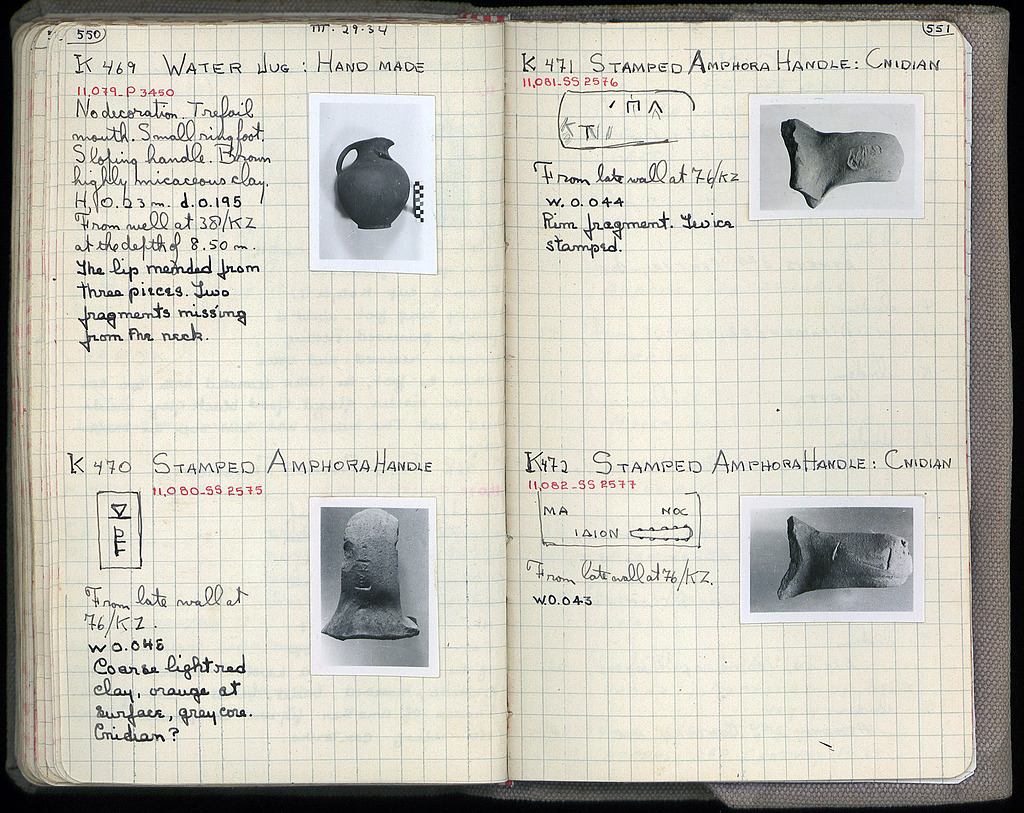 550
m. 29.34
K 469 WATER JUG : HAND MADE
11,079_P 3450
No decoration. Trefoil
mouth. Small ring foot.
Sloping handle. Brown
highly micaceous clay.
H. 0.23 m. d. 0.195
From well at 38/KZ
at the depth of 8.50 m.
The lip mended from
three pieces. Two
fragments missing
from the neck.
K 470 STAMPED AMPHORA HANDLE
11,080_SS 2575
From late wall at
76/KZ.
W 0.045
Coarse light red
clay, orange at
surface, grey core.
Cnidian?
551
K 471 STAMPED AMPHORA HANDLE: CNIDIAN
11,081_SS 2576
From late wall at 76/KZ
W. 0.044
Rim fragment. Twice
stamped.
K 472 STAMPED AMPHORA HANDLE: CNIDIAN
11,082_SS 2577
MA NOC
ΙΔΙΟΝ
From late wall at 76/KZ.
W. 0.043